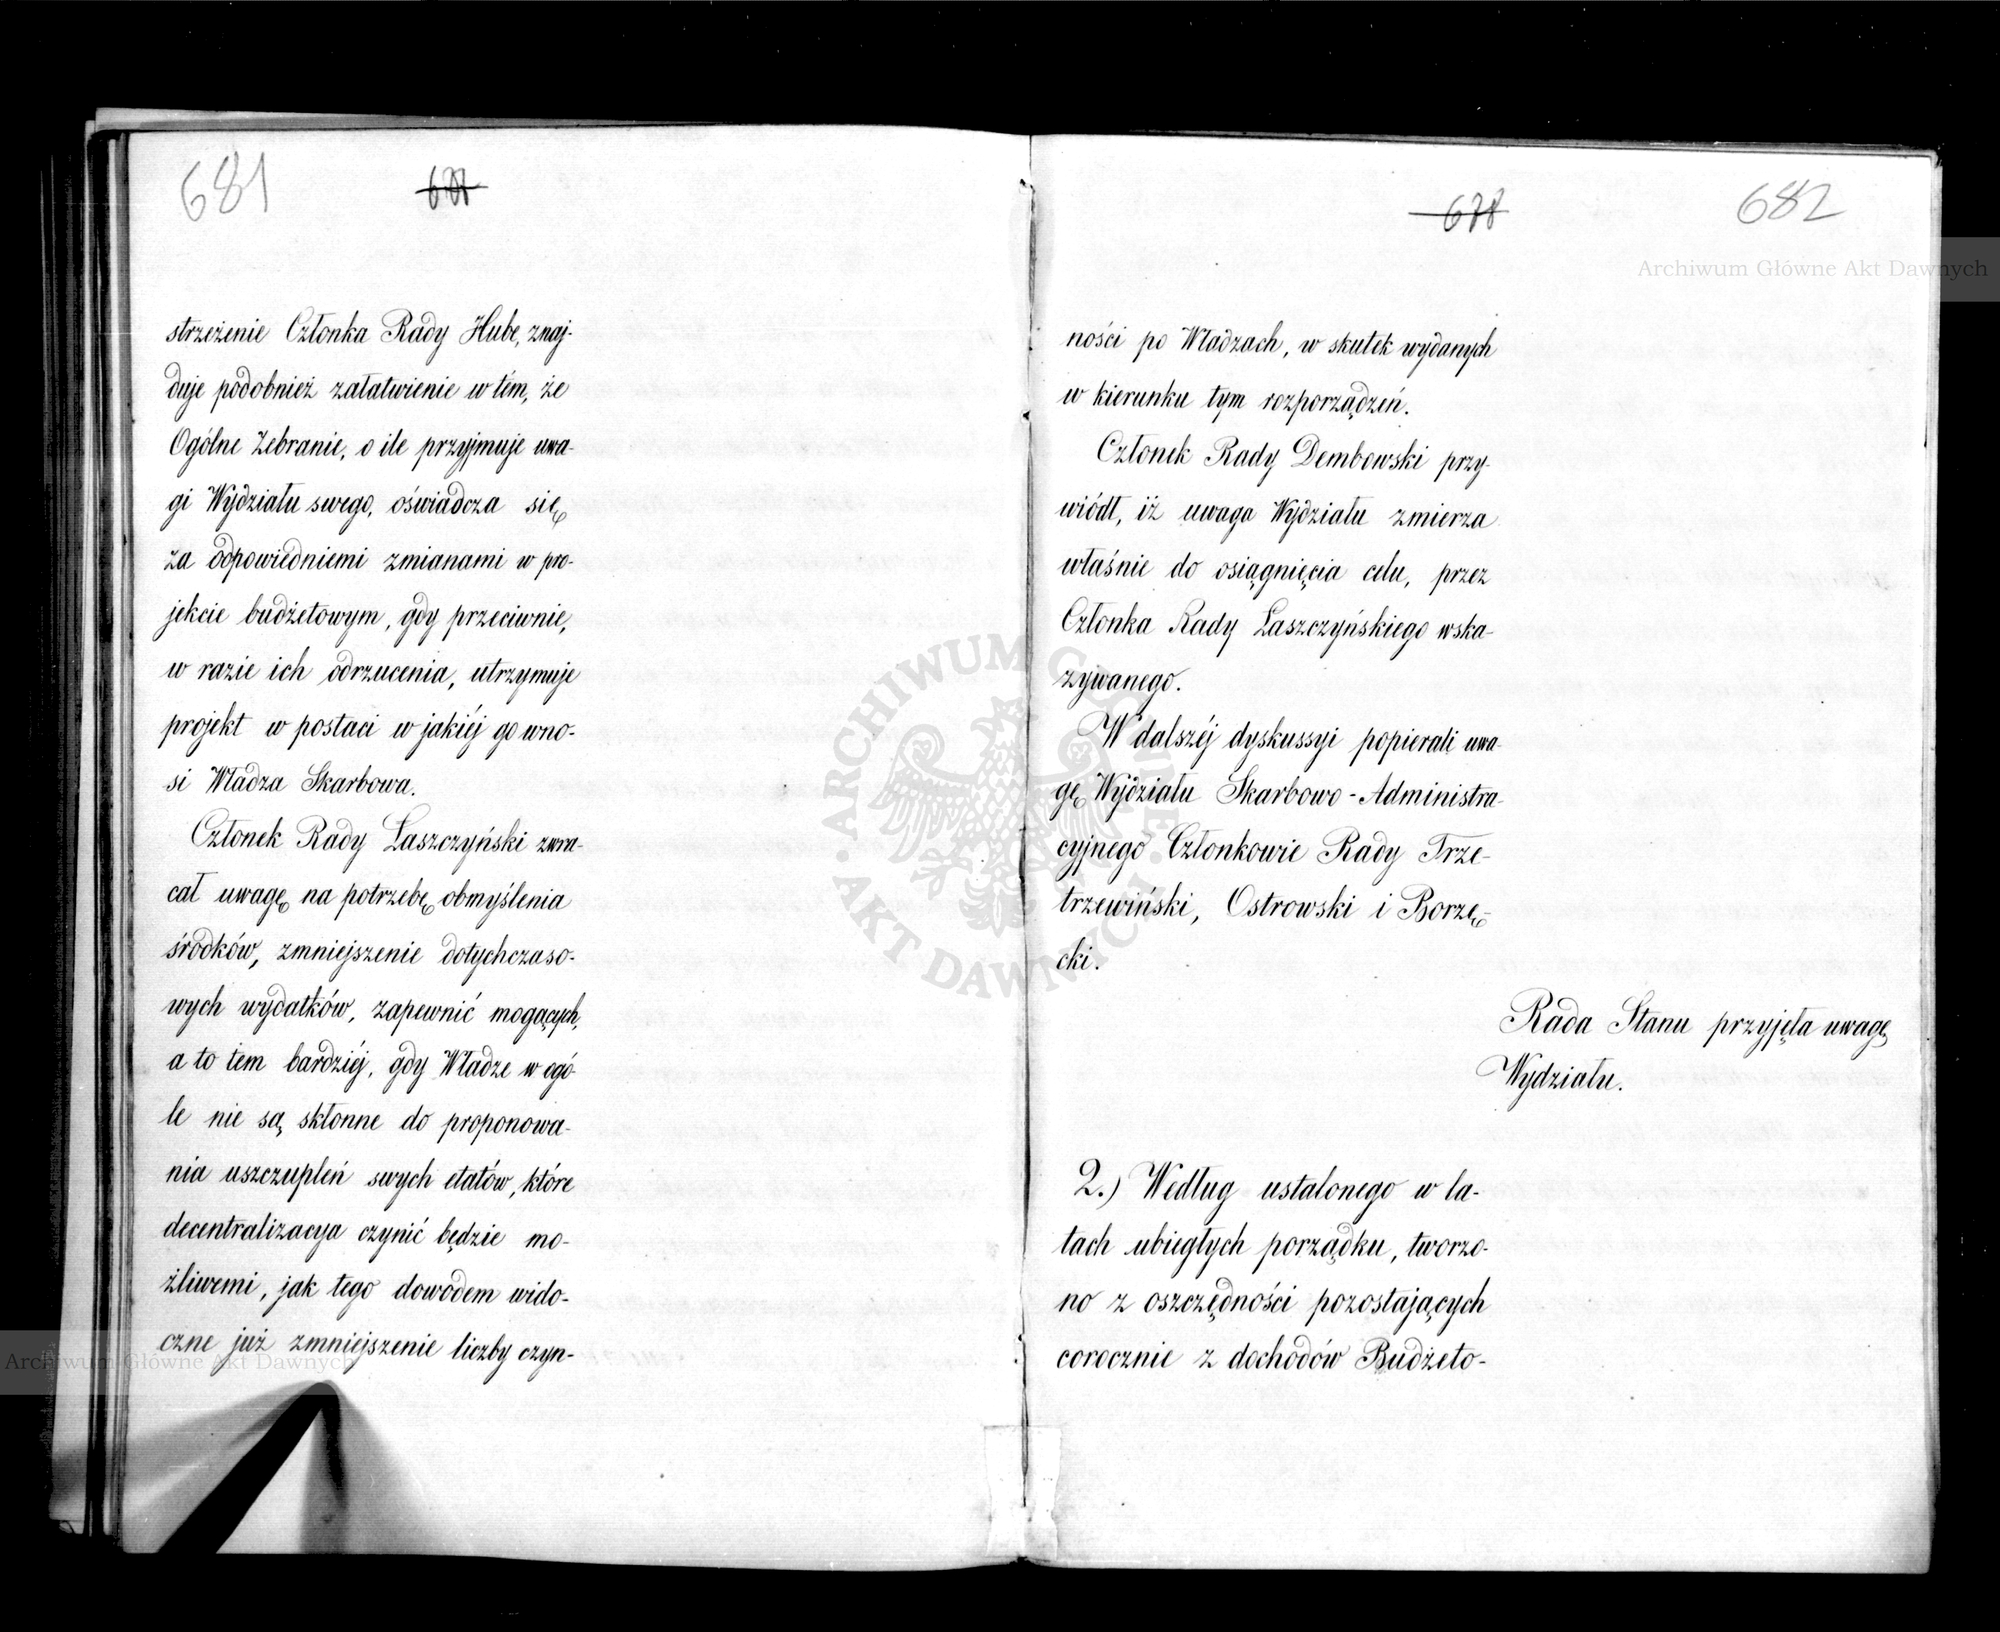 681
strzeżenie Członka Rady Hube, znaj-
duje podobnież załatwienie w tém, że
Ogólne Zebranie, o ile przyjmuje uwa-
gi Wydziału swego, oświadcza się
za odpowiedniemi zmianami w pro-
jekcie budżetowym, gdy przeciwnie,
w razie ich odrzucenia, utrzymuje
projekt w postaci w jakiéj go wno-
si Władza Skarbowa.
Członek Rady Łaszczyński zwra-
cał uwagę na potrzebę obmyślenia
środków, zmniejszenie dotychczaso-
wych wydatków, zapewnić mogących,
a to tem bardziéj, gdy Władze w ogó-
le nie są skłonne do proponowa-
nia uszczupleń swych etatów, które
decentralizacya czynić będzie mo-
żliwemi, jak tego dowodem wido-
czne już zmniejszenie liczby czyn-
678
682
ności po Władzach, w skutek wydanych
w kierunku tym rozporządzeń.
Członek Rady Dembowski przy-
wiódł, iż uwaga Wydziału zmierza
właśnie do osiągnięcia celu, przez
Członka Rady Łaszczyńskiego wska-
zywanego.
W dalszéj dyskussyi popierali uwa-
gę Wydziału Skarbowo-Administra-
cyjnego Członkowie Rady Trze-
trzewiński, Ostrowski i Borzę-
cki.
Rada Stanu przyjęła uwagę
Wydziału.
2.) Według ustalonego w la-
tach ubiegłych porządku, tworzo-
no z oszczędności pozostających
corocznie z dochodów Budżeto-
Archiwum Główne Akt Dawnych
Archiwum Główne Akt Dawnych
ARCHIWUM GŁÓWNE
AKT DAWNYCH